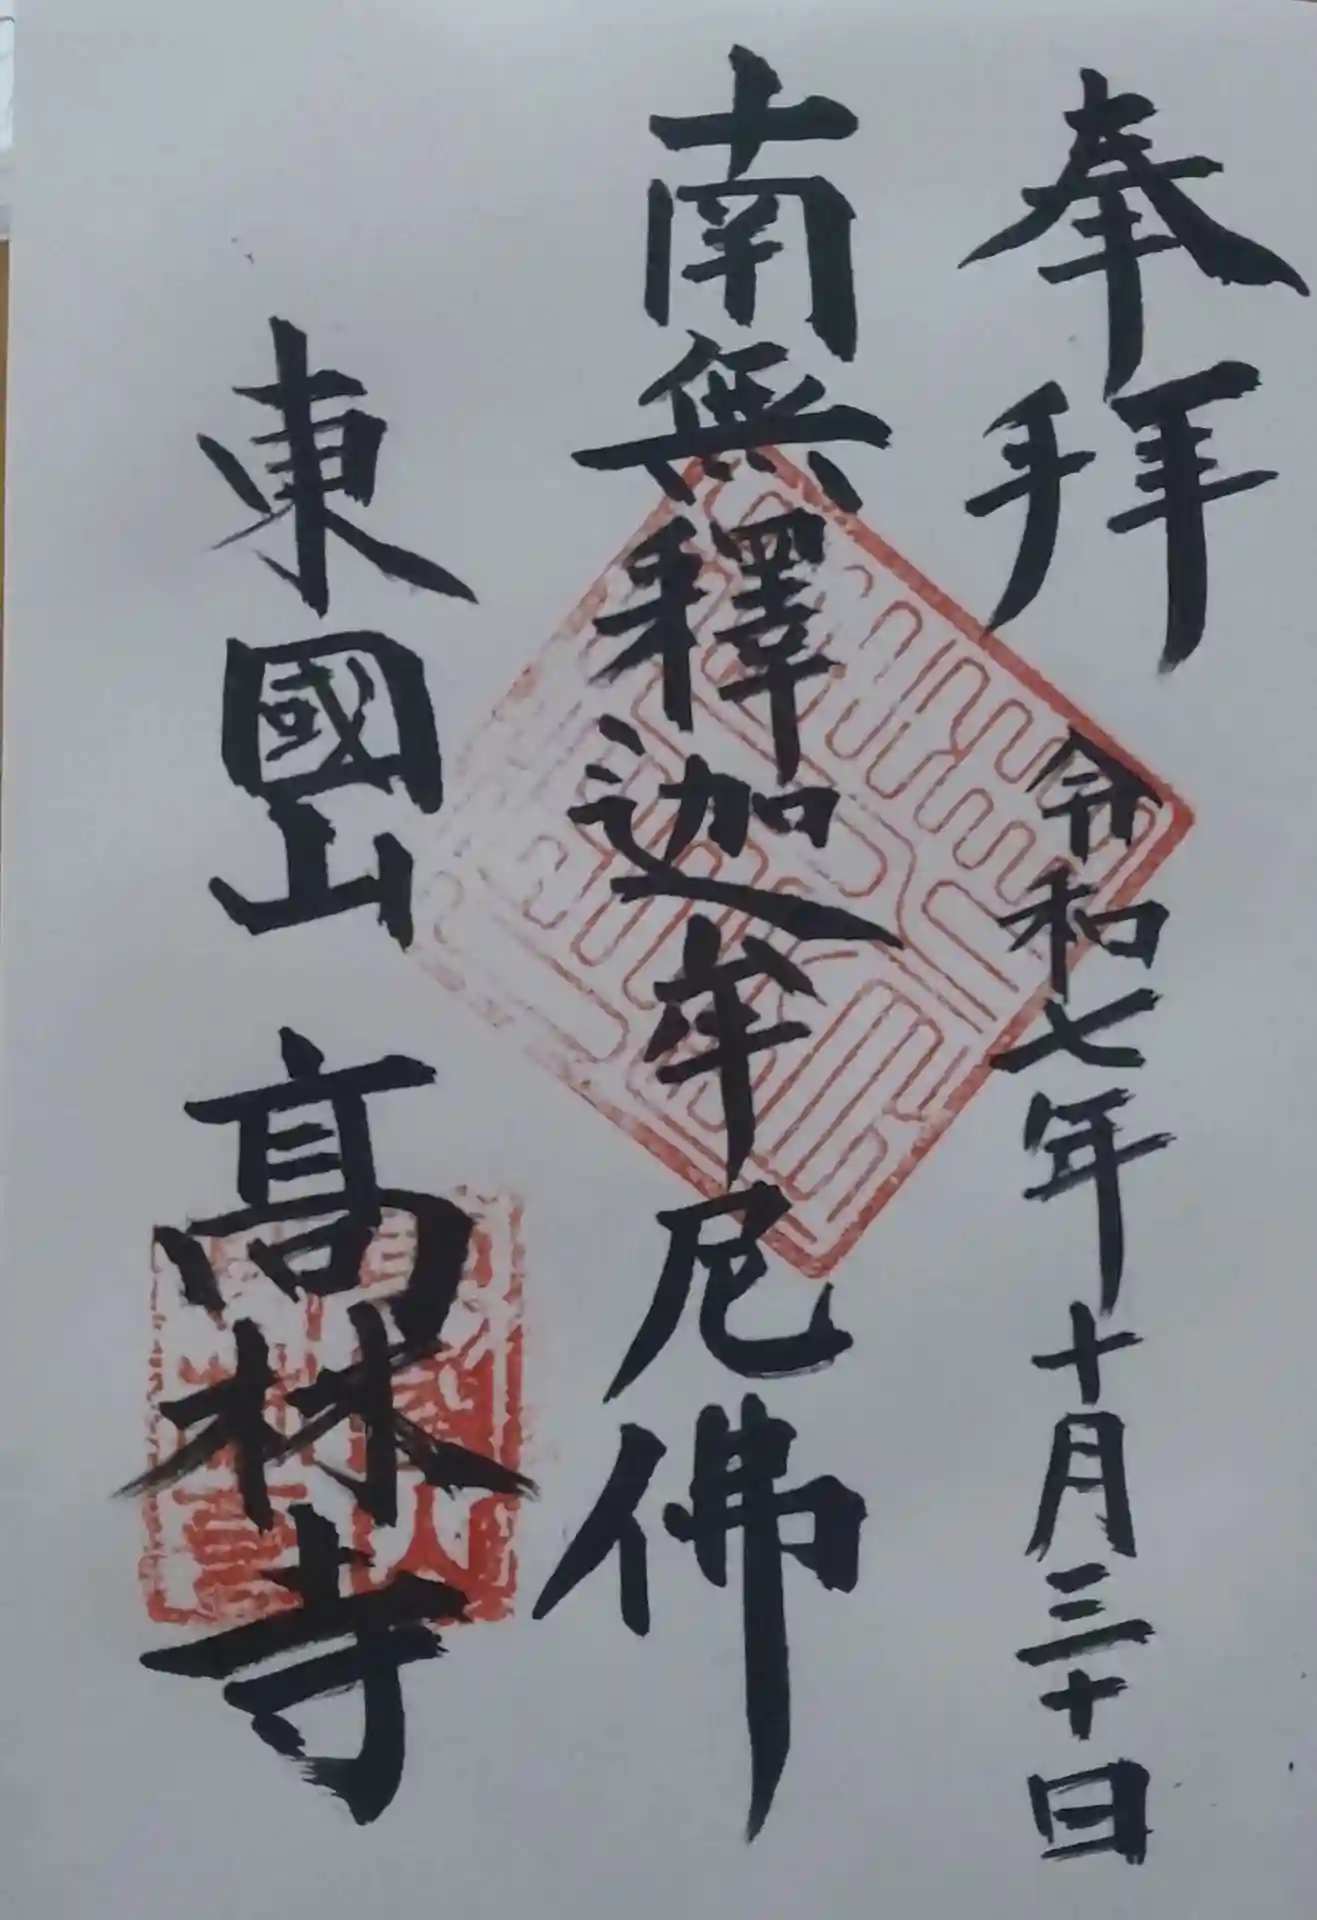 奉拝
令和七年十月三十日
南無釋迦牟尼佛
東國山 髙林寺